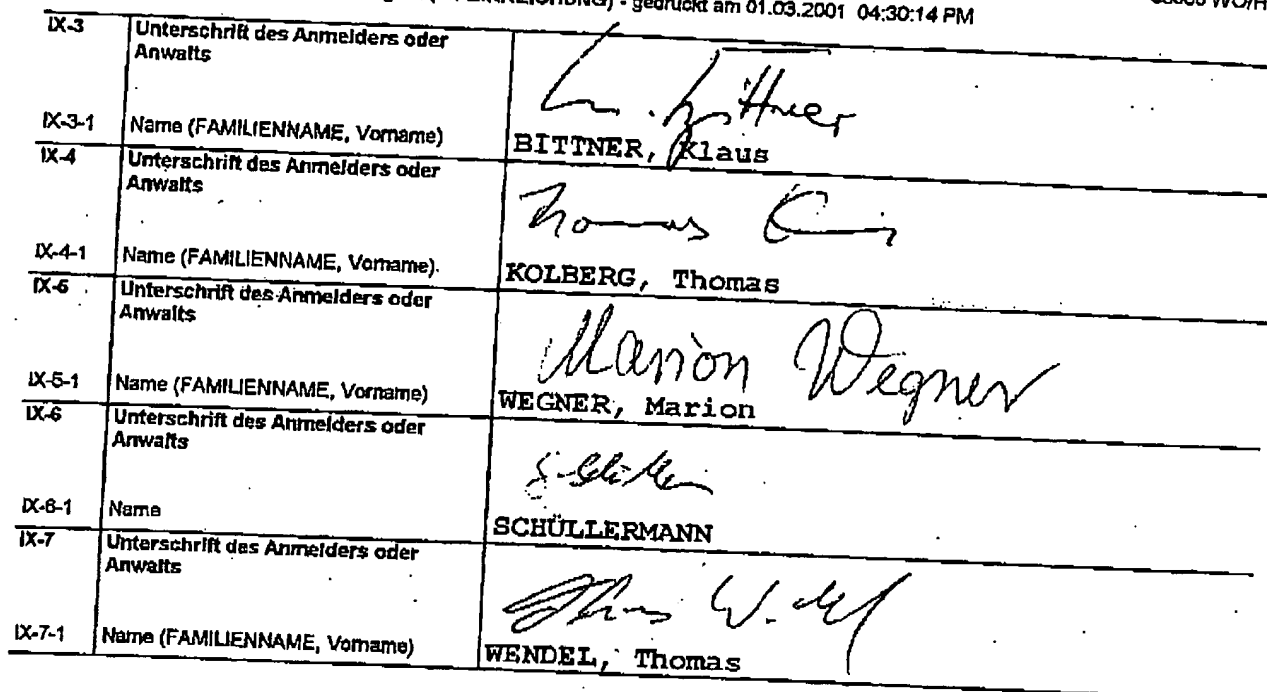 EINREICHUNG) - gedruckt am 01.03.2001 04:30:14 PM
IX-3 Unterschrift des Anmelders oder
Anwalts
IX-3-1 Name (FAMILIENNAME, Vorname) BITTNER, Klaus
IX-4 Unterschrift des Anmelders oder
Anwalts
Thomas
IX-4-1 Name (FAMILIENNAME, Vorname). KOLBERG, Thomas
IX-5 Unterschrift des Anmelders oder
Anwalts
Marion Wegner
IX-5-1 Name (FAMILIENNAME, Vorname) WEGNER, Marion
IX-6 Unterschrift des Anmelders oder
Anwalts
IX-6-1 Name SCHÜLLERMANN
IX-7 Unterschrift des Anmelders oder
Anwalts
IX-7-1 Name (FAMILIENNAME, Vorname) WENDEL, Thomas